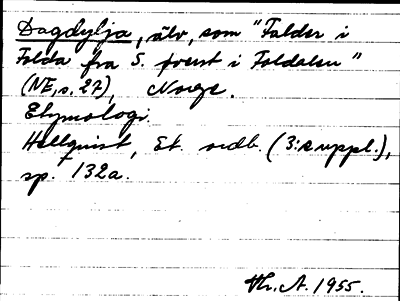 Dagdylja, älv, som "Falder i
Folda fra S. øverst i Foldalen"
(NE, s. 27), Norge.
Etymologi.
Hellquist, Et. ordb. (3:e uppl.),
sp. 132a.
Th. A. 1955.